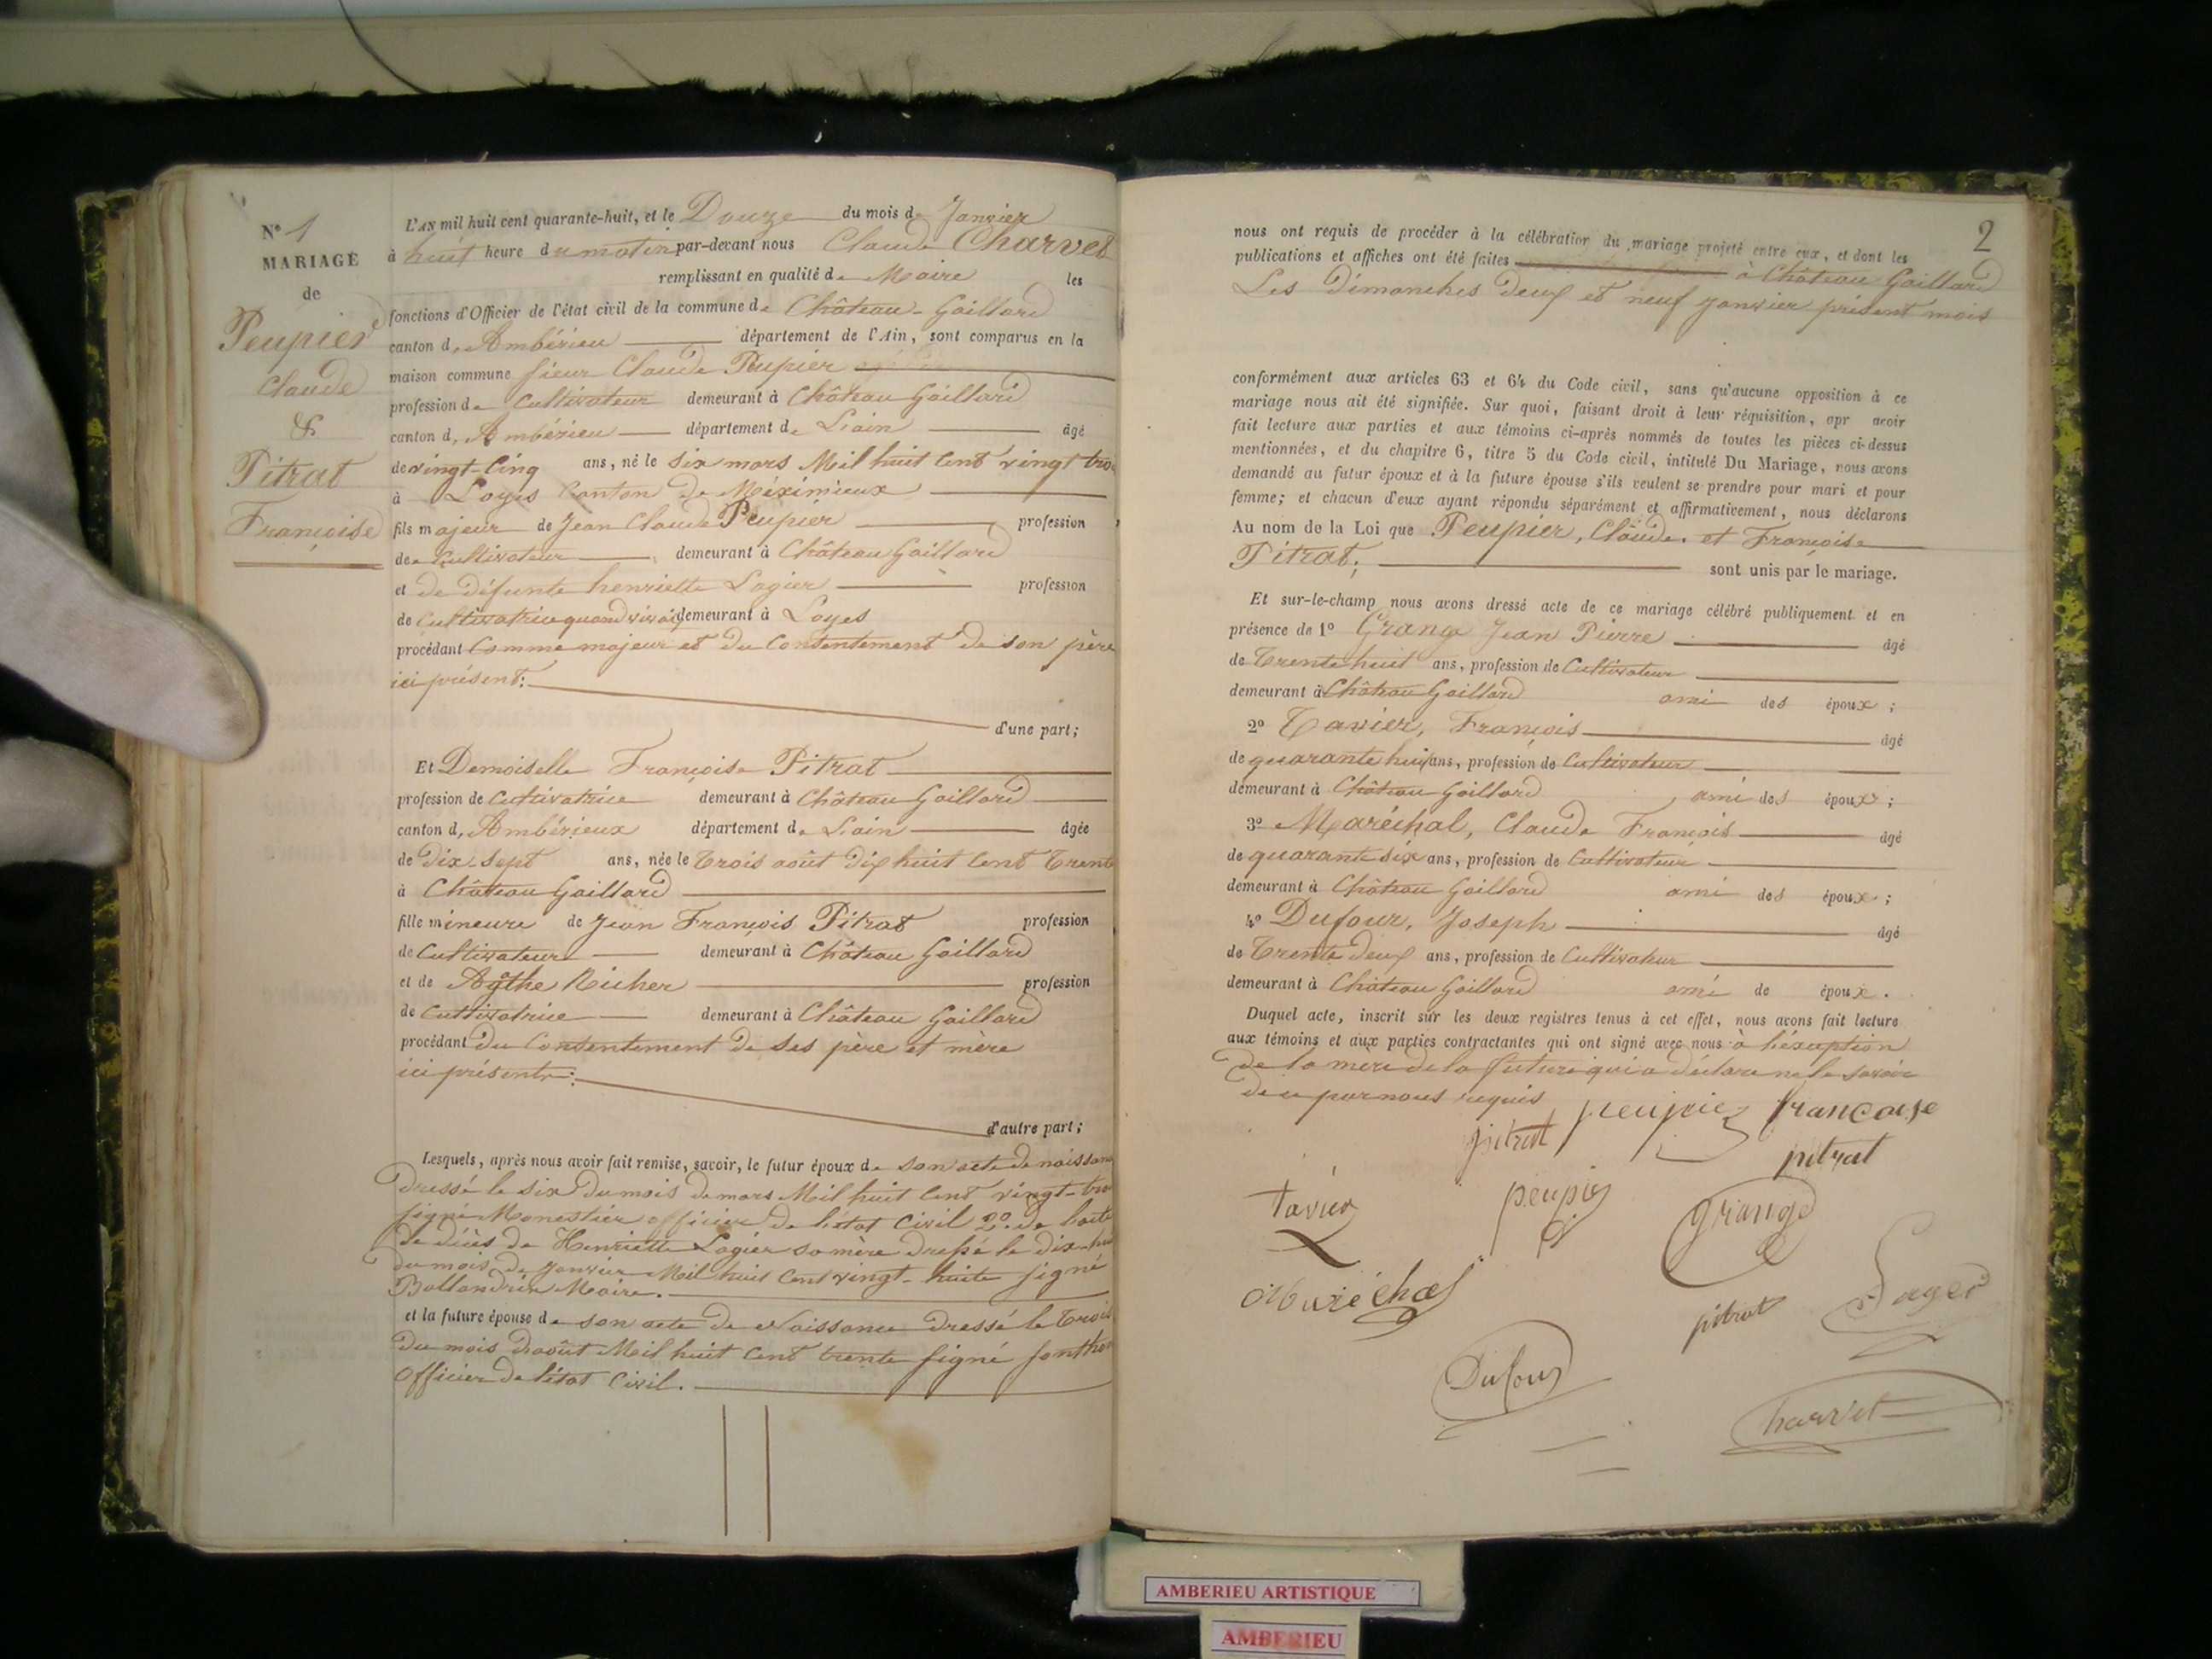 N° 1
MARIAGE
de
Peupier
Claude
&
Pitrat
Françoise
L'AN mil huit cent quarante-huit, et le Douze du mois de Janvier
à huit heure du matin par-devant nous Claude Charvet
remplissant en qualité de Maire les
fonctions d'Officier de l'état civil de la commune de Château-Gaillard
canton d, Ambérieu département de l'Ain, sont comparus en la
maison commune sieur Claude Peupier
profession de Cultivateur demeurant à Château Gaillard
canton d, Ambérieu département de L'ain âgé
de vingt-Cinq ans, né le six mars Mil huit Cent vingt tro
à Loyes Canton de Méximieux
fils majeur de Jean Claude Peupier profession
de Cultivateur demeurant à Château Gaillard
et de défunte henriette Logier profession
de Cultivatrice quand vivait demeurant à Loyes
procédant Comme majeur et du Consentement de son père
ici présent:
d'une part;
Et Demoiselle Françoise Pitrat
profession de Cultivatrice demeurant à Château Gaillard
canton d, Ambérieux département de L'ain âgée
de Dix-Sept ans, née le Trois août Dix huit Cent Trente
à Château Gaillard
fille mineure de Jean François Pitrat profession
de Cultivateur demeurant à Château Gaillard
et de Agthe Richer profession
de Cultivatrice demeurant à Château Gaillard
procédant du Consentement de ses père et mère
ici présents:
d'autre part;
Lesquels, après nous avoir fait remise, savoir, le futur époux de son acte de naissan
Dressé le Six du mois de mars Mil huit Cent vingt-tro
signé Monestier officier de l'état Civil 2° de l'acte
de décès de Henriette Logier sa mère dressé le dix-hu
du mois de Janvier Mil huit Cent vingt-huite signé
Bollandrin Maire.
et la future épouse de son acte de Naissance Dressé le Trois
Du mois d'août Mil huit Cent trente signé
Officier de l'état Civil.
2
nous ont requis de procéder à la célébration du mariage projeté entre eux, et dont les
publications et affiches ont été faites à Château Gaillard
Les Dimanches Deux et neuf Janvier présent mois
conformément aux articles 63 et 64 du Code civil, sans qu'aucune opposition à ce
mariage nous ait été signifiée. Sur quoi, faisant droit à leur réquisition, apr avoir
fait lecture aux parties et aux témoins ci-après nommés de toutes les pièces ci-dessus
mentionnées, et du chapitre 6, titre 5 du Code civil, intitulé Du Mariage, nous avons
demandé au futur époux et à la future épouse s'ils veulent se prendre pour mari et pour
femme; et chacun d'eux ayant répondu séparément et affirmativement, nous déclarons
Au nom de la Loi que Peupier, Claude. et Françoise
Pitrat; sont unis par le mariage.
Et sur-le-champ nous avons dressé acte de ce mariage célébré publiquement et en
présence de 1° Grange Jean Pierre âgé
de Trente-huit ans, profession de Cultivateur
demeurant à Château Gaillard ami des époux;
2° Tavier, François âgé
de quarante huit ans, profession de Cultivateur
demeurant à Château Gaillard ami des époux;
3° Maréchal, Claude François âgé
de quarante six ans, profession de Cultivateur
demeurant à Château Gaillard ami des époux;
4° Dufour, Joseph âgé
de Trente Deux ans, profession de Cultivateur
demeurant à Château Gaillard ami de époux.
Duquel acte, inscrit sur les deux registres tenus à cet effet, nous avons fait lecture
aux témoins et aux parties contractantes qui ont signé avec nous à l'éxception
De la mère de la future qui a déclare ne le savoir
De ce par nous requis
pitrat peupier francoise
pitrat
tavier peupier grange
Maréchal pitrat
Dufour
Charvet
AMBERIEU ARTISTIQUE
AMBERIEU